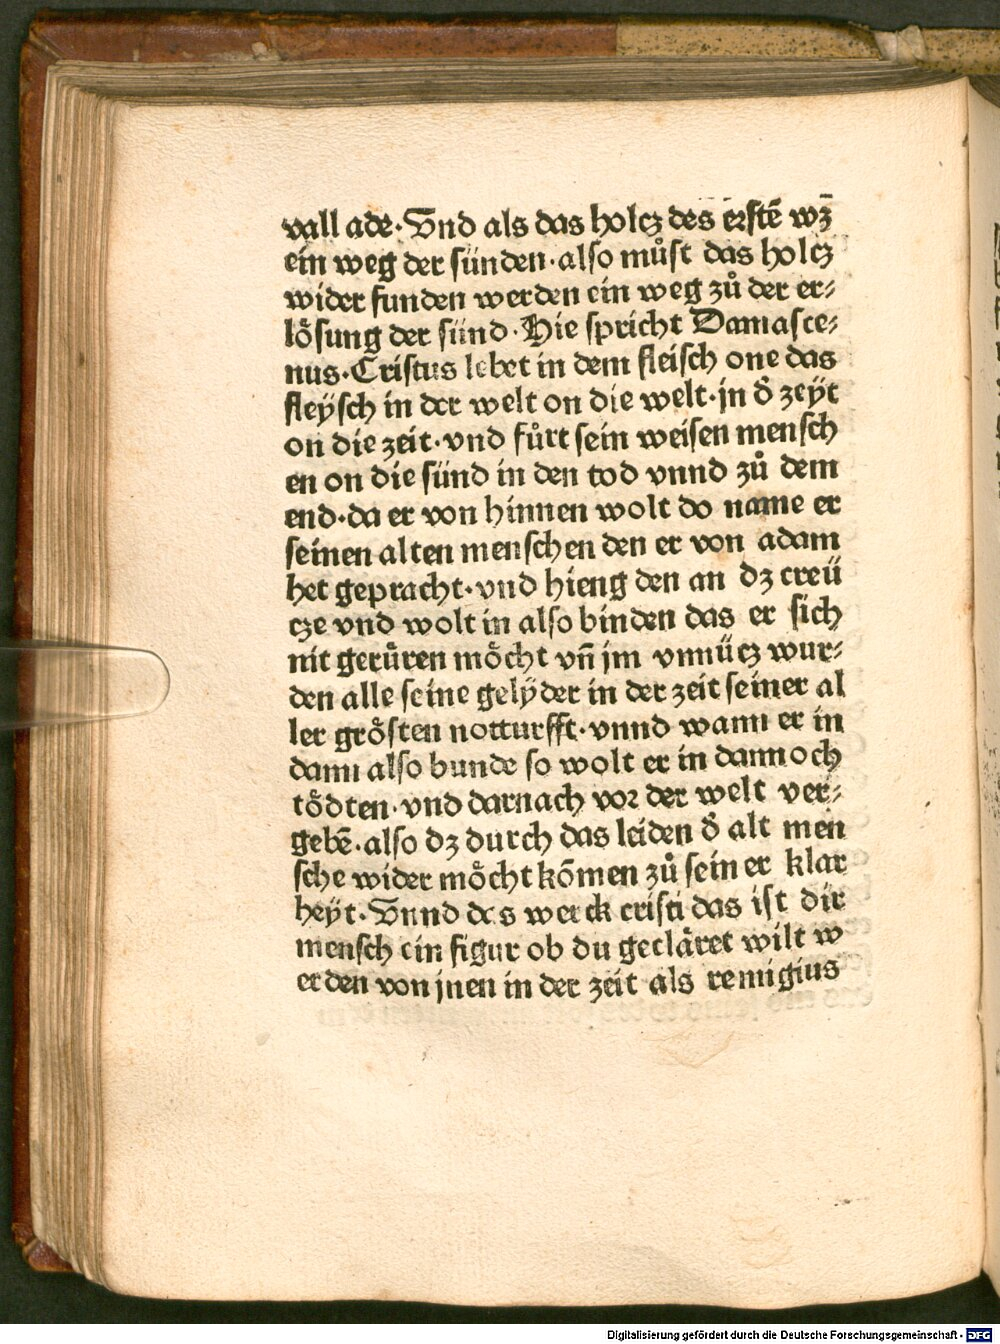 vall ade·Vnd als das holcz des erstē wꝫ
ein weg der sünden·also můst das holcz
wider funden werden ein weg zů der er⸗
lösung der sünd·Hie spricht Damasce⸗
nus·Cristus lebet in dem fleisch one das
fleÿsch in der welt on die welt·jn d̕ zeÿt
on die zeit·vnd fůrt sein weisen mensch
en on die sünd in den tod vnnd zů dem
end·da er von hinnen wolt do name er
seinen alten menschen den er von adam
het gepracht·vnd hieng den an dꝫ creü
cze vnd wolt in also binden das er sich
nit gerůren möcht vn̄ jm vnnücz wur⸗
den alle seine gelÿder in der zeit seiner al
ler grösten notturfft·vnnd wann er in
dann also bunde so wolt er in dannoch
tödten·vnd darnach vor der welt ver⸗
gebē·also dꝫ durch das leiden d̕ alt men
sche wider möcht kōmen zů seiner klar
heÿt·Vnnd das werck cristi das ist dir
mensch ein figur ob du gecläret wilt w
erden von jnen in der zeit als remigius
Digitalisierung gefördert durch die Deutsche Forschungsgemeinschaft - DFG